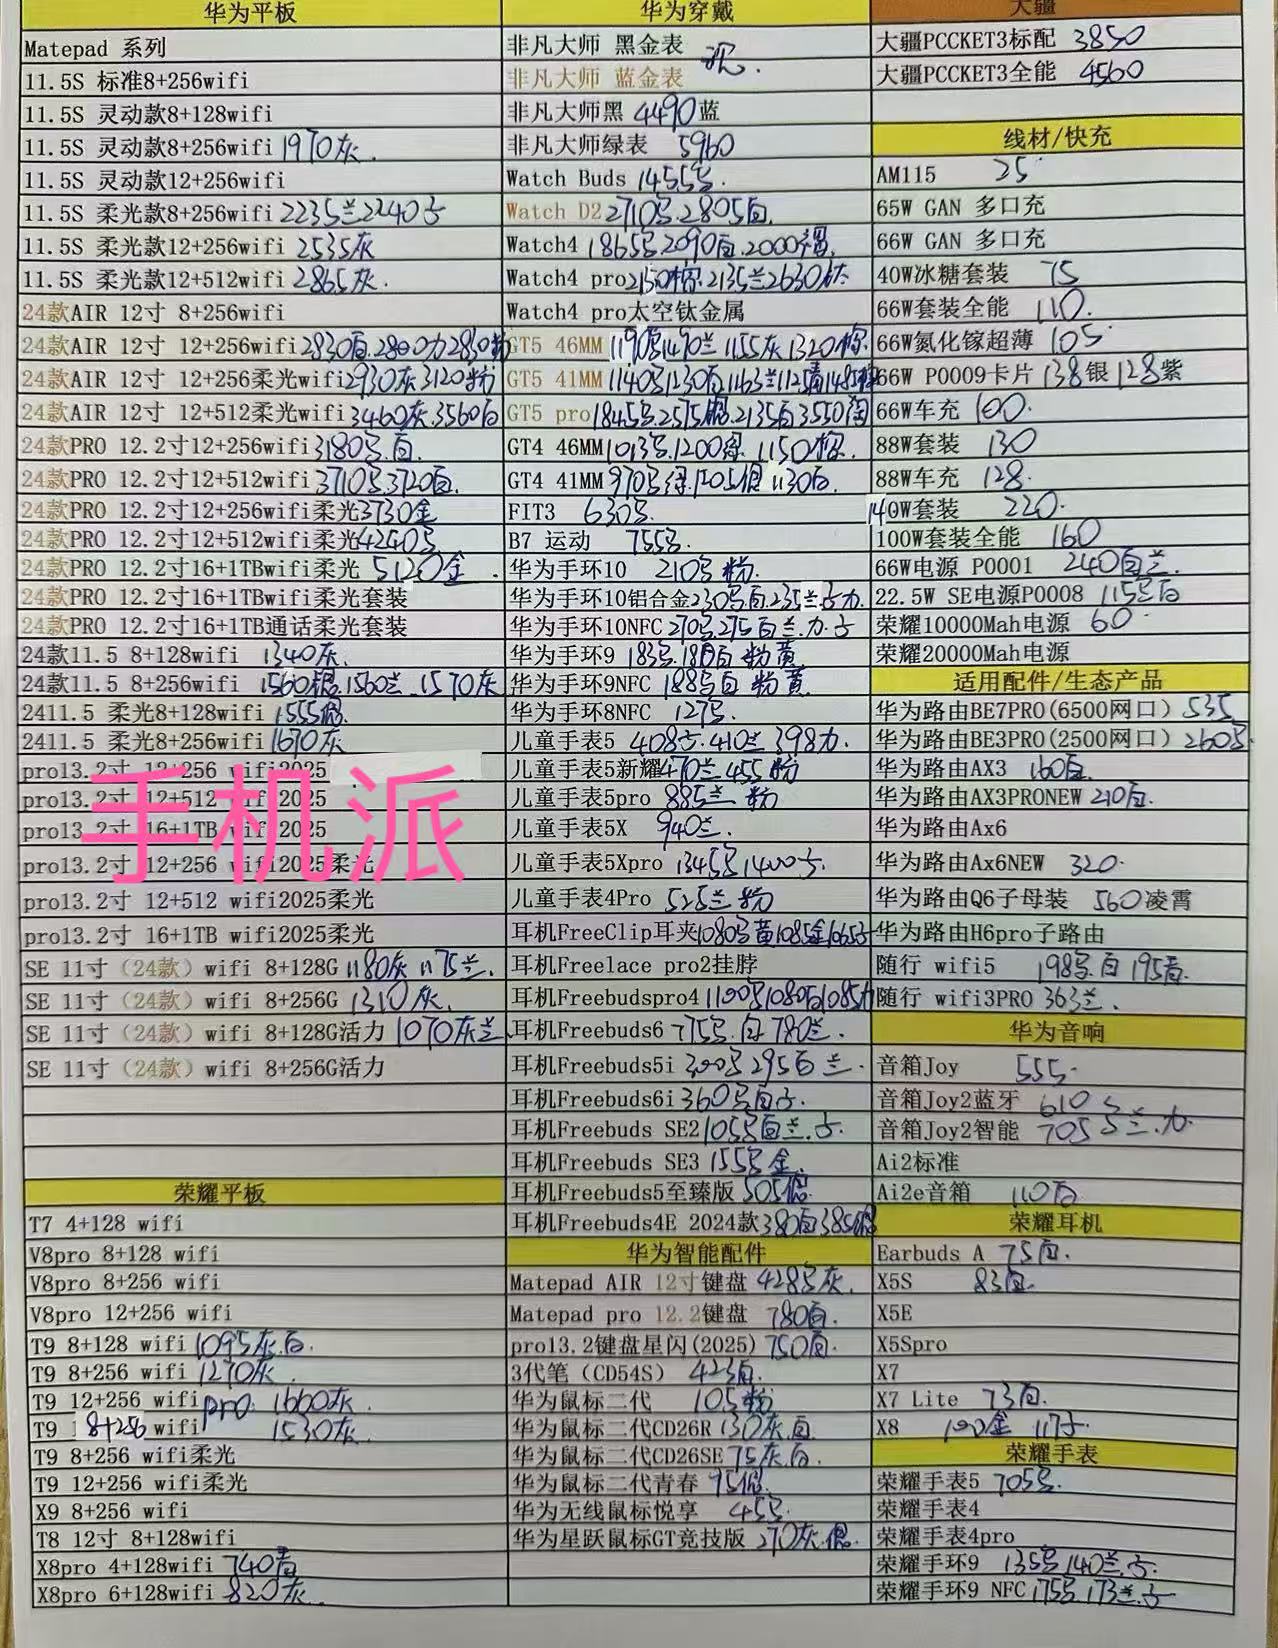 华为平板
Matepad 系列
11.5S 标准8+256wifi
11.5S 灵动款8+128wifi
11.5S 灵动款8+256wifi 1970灰.
11.5S 灵动款12+256wifi
11.5S 柔光款8+256wifi 2235兰2240
11.5S 柔光款12+256wifi 2535灰
11.5S 柔光款12+512wifi 2865灰.
24款AIR 12寸 8+256wifi
24款AIR 12寸 12+256wifi 2830白.2800 2830粉
24款AIR 12寸 12+256柔光wifi 2930灰3120粉
24款AIR 12寸 12+512柔光wifi 3460灰.3560白
24款PRO 12.2寸12+256wifi 3180 .白.
24款PRO 12.2寸12+512wifi 3710 3720白.
24款PRO 12.2寸12+256wifi柔光3730金
24款PRO 12.2寸12+512wifi柔光4240
24款PRO 12.2寸16+1TBwifi柔光 5120金.
24款PRO 12.2寸16+1TBwifi柔光套装
24款PRO 12.2寸16+1TB通话柔光套装
24款11.5 8+128wifi 1340灰.
24款11.5 8+256wifi 1560银.1560兰.1570灰
2411.5 柔光8+128wifi 1555银
2411.5 柔光8+256wifi 1670灰
pro13.2寸 12+256 wifi2025
pro13.2寸 12+512 wifi2025
pro13.2寸 16+1TB wifi2025
pro13.2寸 12+256 wifi2025柔光
pro13.2寸 12+512 wifi2025柔光
pro13.2寸 16+1TB wifi2025柔光
手机派
SE 11寸（24款）wifi 8+128G 1180灰 1175兰.
SE 11寸（24款）wifi 8+256G 1310灰.
SE 11寸（24款）wifi 8+128G活力 1070灰兰
SE 11寸（24款）wifi 8+256G活力
荣耀平板
T7 4+128 wifi
V8pro 8+128 wifi
V8pro 8+256 wifi
V8pro 12+256 wifi
T9 8+128 wifi 1095灰.白.
T9 8+256 wifi 1270灰
T9 12+256 wifi pro 1660灰.
T9 8+256 wifi 1530灰.
T9 8+256 wifi柔光
T9 12+256 wifi柔光
X9 8+256 wifi
T8 12寸 8+128wifi
X8pro 4+128wifi 740青
X8pro 6+128wifi 820灰.
华为穿戴
非凡大师 黑金表
非凡大师 蓝金表
非凡大师黑 4490蓝
非凡大师绿表 5960
Watch Buds 1455
Watch D2 2710 .2805白.
Watch4 1865 .2090白.2000
Watch4 pro 2150棕.2135兰2630钛
Watch4 pro太空钛金属
GT5 46MM 1190 1490兰 1155灰 1320棕.
GT5 41MM 1140 1230白 1163兰1125青1485
GT5 pro 1845 .2575 .2135白3550陶
GT4 46MM 1013 .1200绿. 1150棕.
GT4 41MM 970 绿.1205银 1130白.
FIT3 630
B7 运动 755
华为手环10 210 粉.
华为手环10铝合金230 .白.235兰
华为手环10NFC 270 .275白兰.
华为手环9 183 .18 白 粉黄
华为手环9NFC 188 白 粉黄
华为手环8NFC 127
儿童手表5 408 .410兰 398
儿童手表5新耀470兰 455粉
儿童手表5pro 885兰 粉
儿童手表5X 940兰.
儿童手表5Xpro 1345 1400
儿童手表4Pro 525兰 粉
耳机FreeClip耳夹1080 黄1085金1065
耳机Freelace pro2挂脖
耳机Freebudspro4 1100 1080白1085
耳机Freebuds6 775 .白 780兰.
耳机Freebuds5i 300 295白兰.
耳机Freebuds6i 360 白
耳机Freebuds SE2 105 白兰.
耳机Freebuds SE3 155 金.
耳机Freebuds5至臻版 505银
耳机Freebuds4E 2024款380白385银
华为智能配件
Matepad AIR 12寸键盘 428 灰.
Matepad pro 12.2键盘 780白.
pro13.2键盘星闪(2025) 750白.
3代笔（CD54S） 423白.
华为鼠标二代 105粉
华为鼠标二代CD26R 130灰.白
华为鼠标二代CD26SE 75灰.白.
华为鼠标二代青春 95银
华为无线鼠标悦享 45
华为星跃鼠标GT竞技版 270灰.银.
大疆
大疆PCCKET3标配 3850
大疆PCCKET3全能 4560
线材/快充
AM115 25
65W GAN 多口充
66W GAN 多口充
40W冰糖套装 75
66W套装全能 110.
66W氮化镓超薄 105
66W P0009卡片 138银 128紫
66W车充 100.
88W套装 130
88W车充 128.
140W套装 220.
100W套装全能 160
66W电源 P0001 240白兰.
22.5W SE电源P0008 115 白
荣耀10000Mah电源 60
荣耀20000Mah电源
适用配件/生态产品
华为路由BE7PRO(6500网口) 535
华为路由BE3PRO(2500网口) 260
华为路由AX3 160白.
华为路由AX3PRONEW 210白.
华为路由Ax6
华为路由Ax6NEW 320.
华为路由Q6子母装 560凌霄
华为路由H6pro子路由
随行 wifi5 198 .白 195青.
随行 wifi3PRO 363兰.
华为音响
音箱Joy 555.
音箱Joy2蓝牙 610
音箱Joy2智能 705 兰.
Ai2标准
Ai2e音箱 110白
荣耀耳机
Earbuds A 75白.
X5S 83白.
X5E
X5Spro
X7
X7 Lite 73白.
X8 100金 117
荣耀手表
荣耀手表5 705
荣耀手表4
荣耀手表4pro
荣耀手环9 135 140兰.
荣耀手环9 NFC 175 173兰.